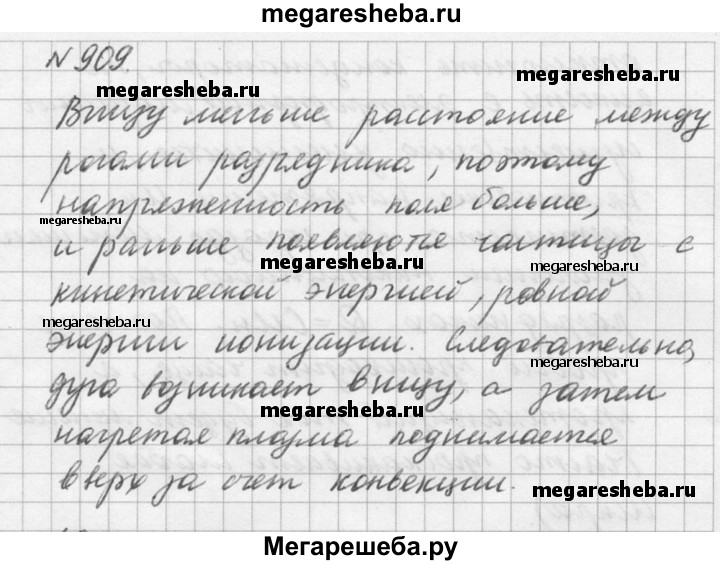 megaresheba.ru
№ 909.
megaresheba.ru
megaresheba.ru
Внизу меньше расстояние между
рогами разрядника, поэтому
напряженность поля больше,
megaresheba.ru
и раньше появляются частицы с
megaresheba.ru
megaresheba.ru
кинетической энергией, равной
megaresheba.ru
энергии ионизации. Следовательно,
megaresheba.ru
дуга возникает внизу, а затем
megaresheba.ru
megaresheba.ru
нагретая плазма поднимается
вверх за счет конвекции.
megaresheba.ru
Мегарешеба.ру